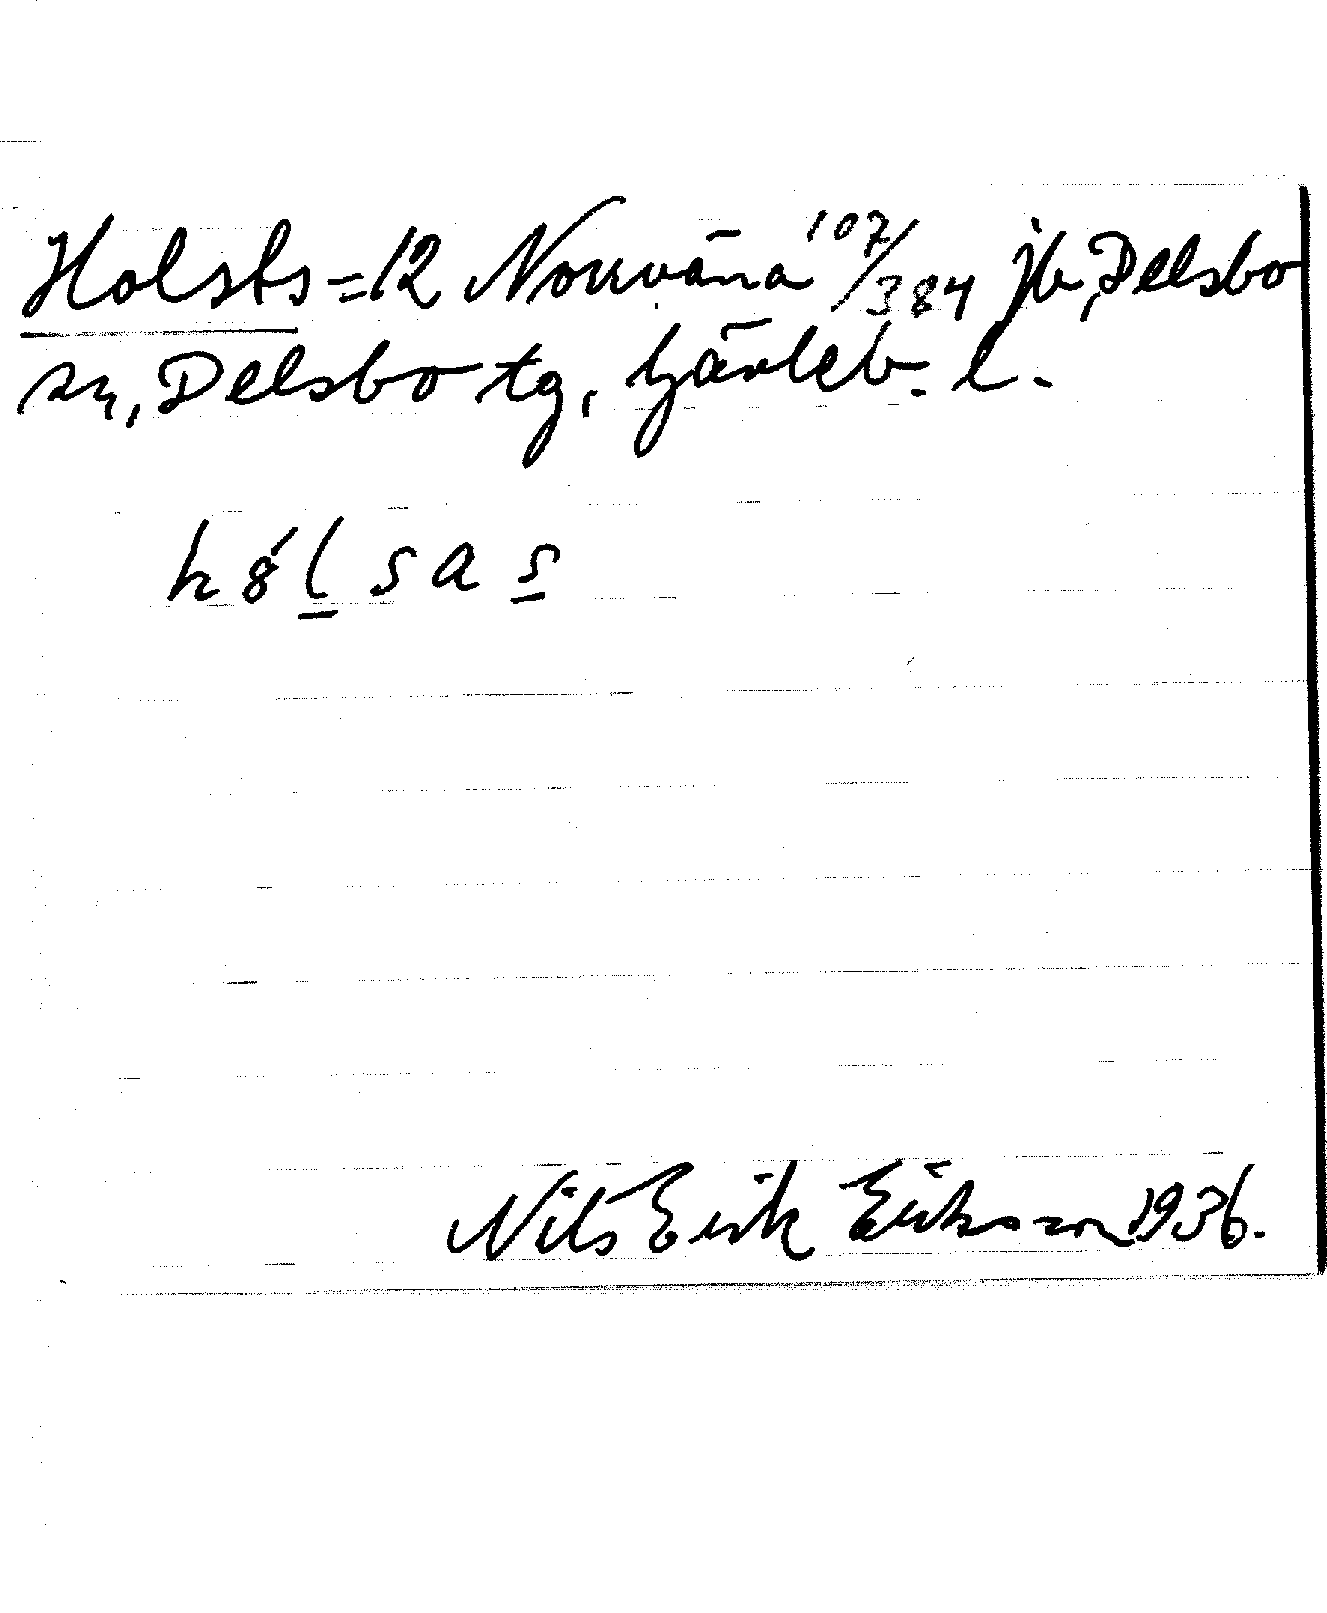 Holsts = 12 Norrväna 107/384 jb, Delsbo
sn, Delsbo tg, Gävleb. l.
hȣ́lsas
Nils Erik Eriksson 1936.